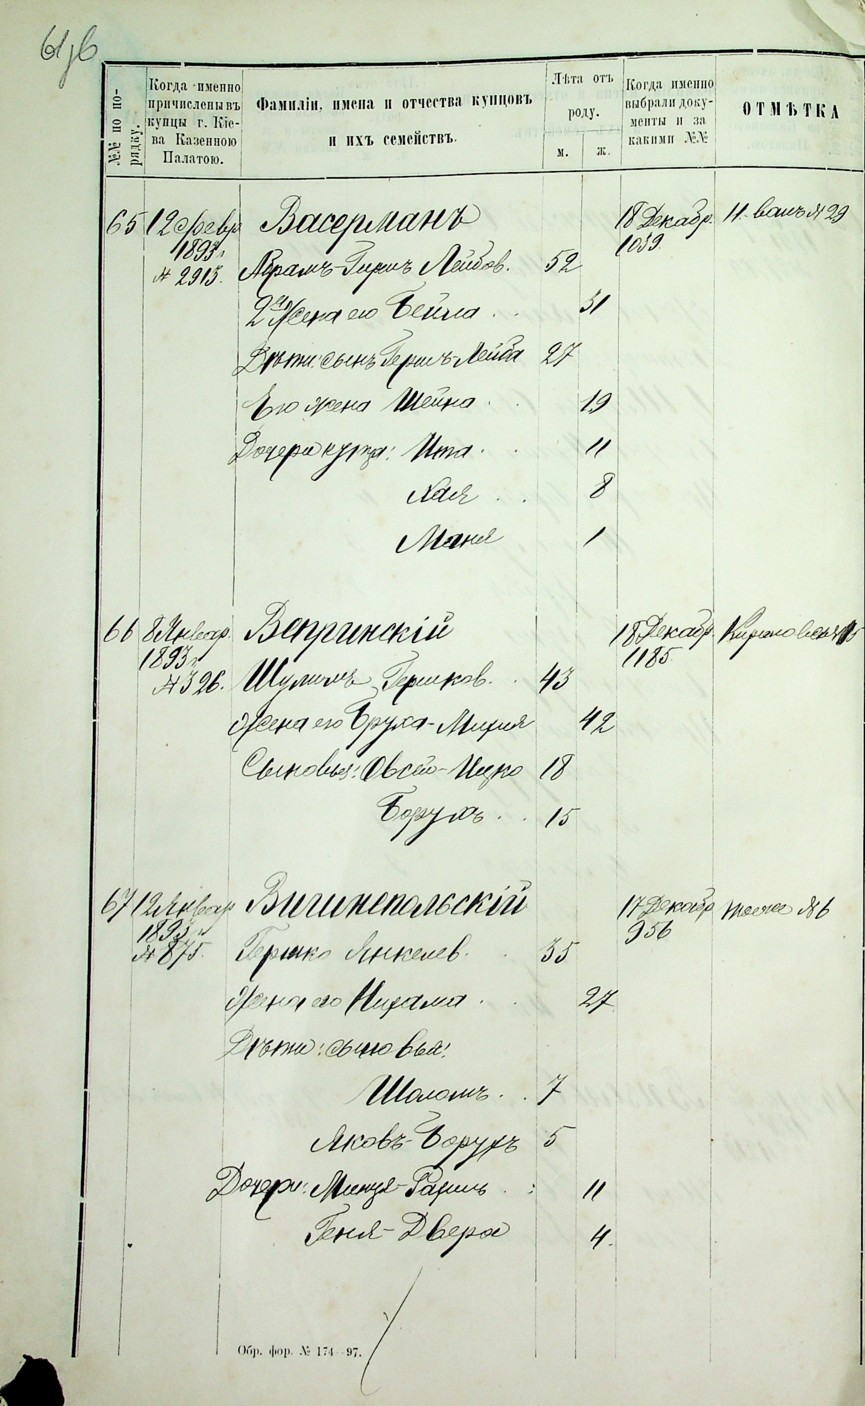 №№ по порядку.
Когда именно причислены въ купцы г. Кіева Казенною Палатою.
Фамиліи, имена и отчества купцовъ и ихъ семействъ.
Лѣта отъ роду.
м. ж.
Когда именно выбрали документы и за какими №№
ОТМѢТКА
65 12 Февр. Васерманъ 18 Декабр. №29
1893 г. 1039.
№ 2913. Абрамъ-Гершъ Лейбов. 52
2ая Жена его Бейла 31
Дѣти: сынъ Герш-Лейба 27
Его жена Шейна 19
Дочери купца: Ита 11
Хая 8
Маня 1
66 8 Январ. Вепринскій 18 Декабр.
1893 г. 1185.
№ 326. Шулимъ Гершков. 43
Жена его Бруха-Мирия 42
Сыновья: Овсей-Ицко 18
Борухъ 15
67 12 Январ. 17 Декабр. №6
1893 г. 956
№ 875. Гершко Янкелев. 35
Жена его Нихама 27
Дѣти: сыновья:
Шоломъ 7
Яковъ-Борухъ 5
Дочери: 11
Геня-Двера 4.
Обр. фор. № 174—97.